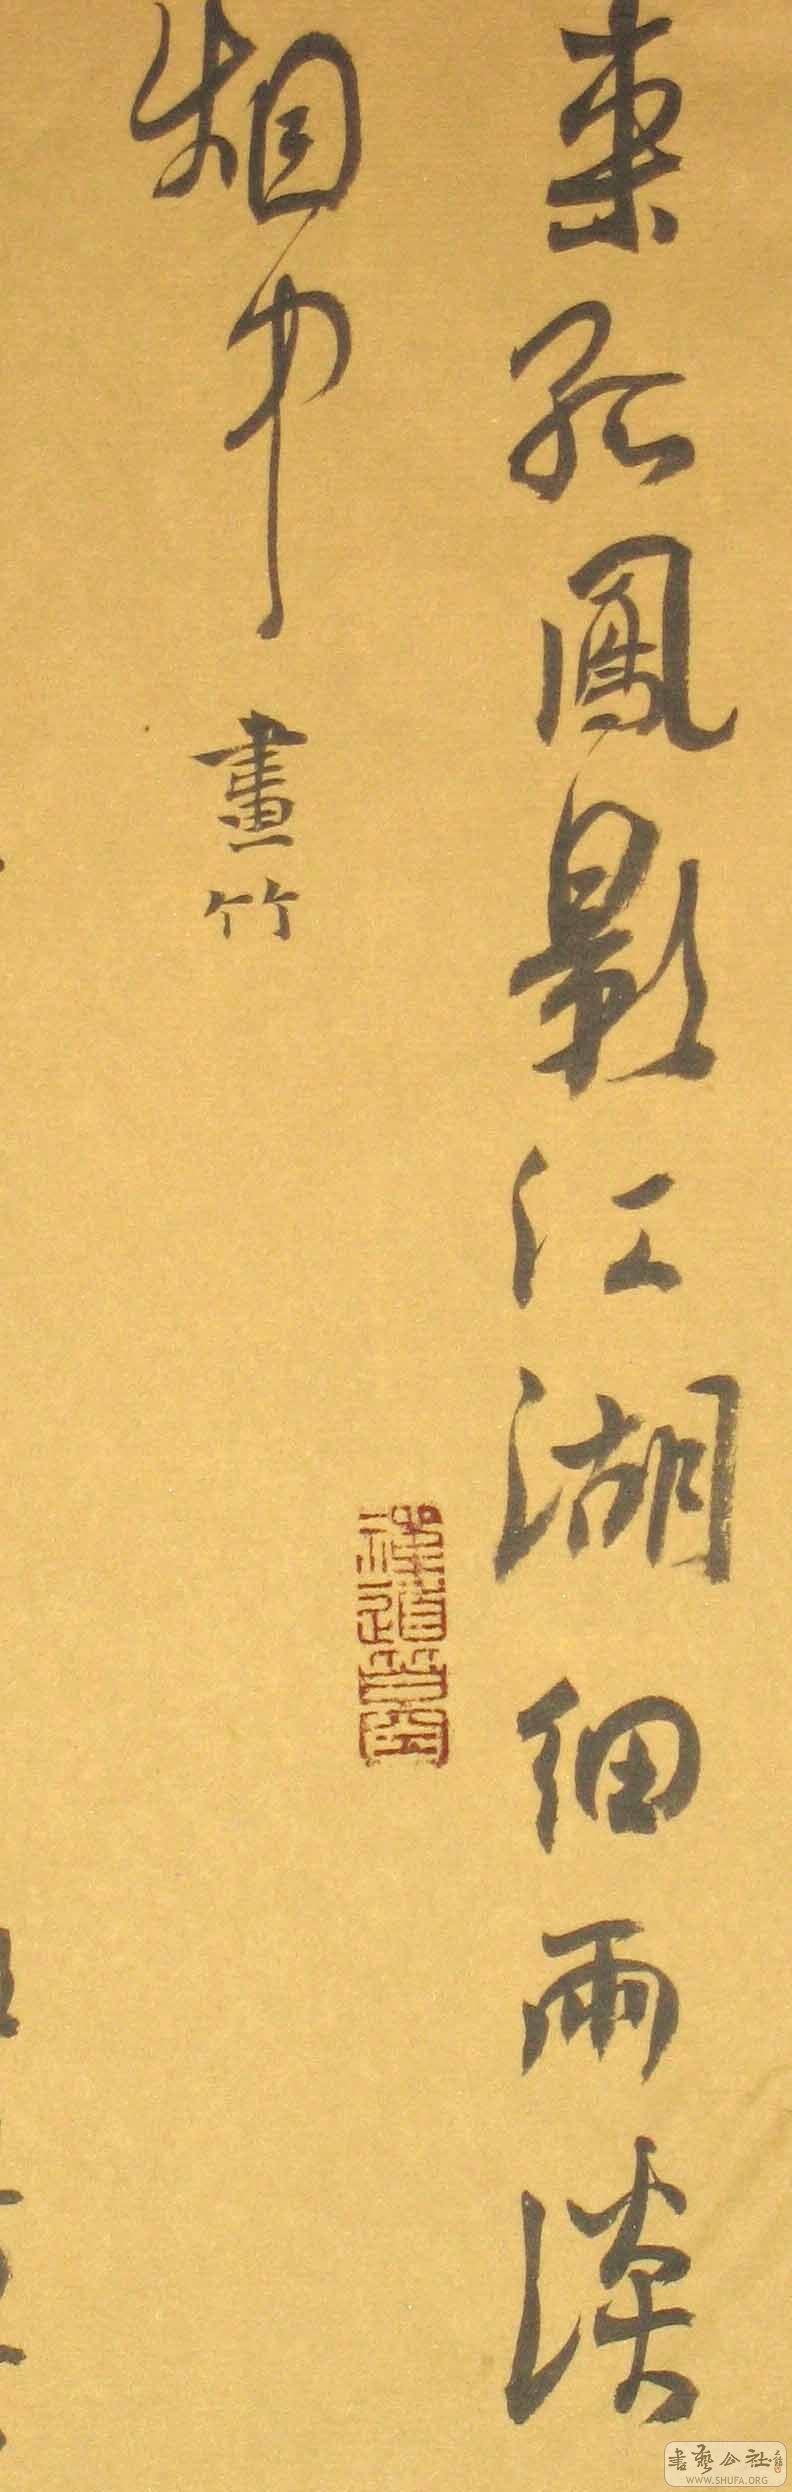 孤鳳影江湖細雨淡
烟中
畫竹
書藝公社
WWW.SHUFA.ORG